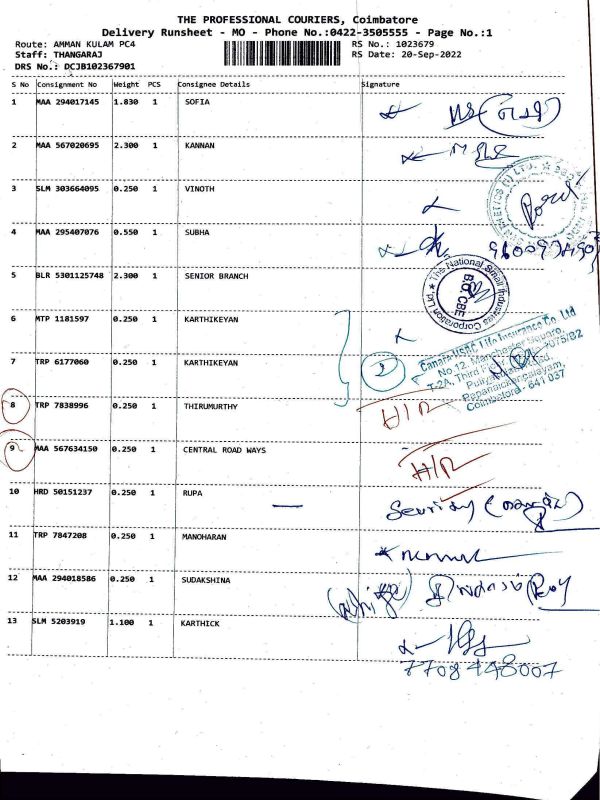 THE PROFESSIONAL COURIERS, Coimbatore
Delivery Runsheet - MO - Phone No.:0422-3505555 - Page No.:1
Route: AMMAN KULAM PC4 RS No.: 1023679
Staff: THANGARAJ RS Date: 20-Sep-2022
DRS No.: DCJB102367901
S No Consignment No Weight PCS Consignee Details Signature
1 MAA 294017145 1.830 1 SOFIA
2 MAA 567020695 2.300 1 KANNAN
3 SLM 303664095 0.250 1 VINOTH
4 MAA 295407076 0.550 1 SUBHA
5 BLR 5301125748 2.300 1 SENIOR BRANCH
The National Small Industries Corporation Ltd.
B.O. CBE
6 MTP 1181597 0.250 1 KARTHIKEYAN
7 TRP 6177060 0.250 1 KARTHIKEYAN
2
Canara HSBC Life Insurance Co Ltd
No 12, Manchester Square,
Coimbatore - 641 037
8 TRP 7838996 0.250 1 THIRUMURTHY H/R
9 MAA 567634150 0.250 1 CENTRAL ROAD WAYS H/R
10 HRD 50151237 0.250 1 RUPA
11 TRP 7847208 0.250 1 MANOHARAN
12 MAA 294018586 0.250 1 SUDAKSHINA
13 SLM 5203919 1.100 1 KARTHICK
7708448007